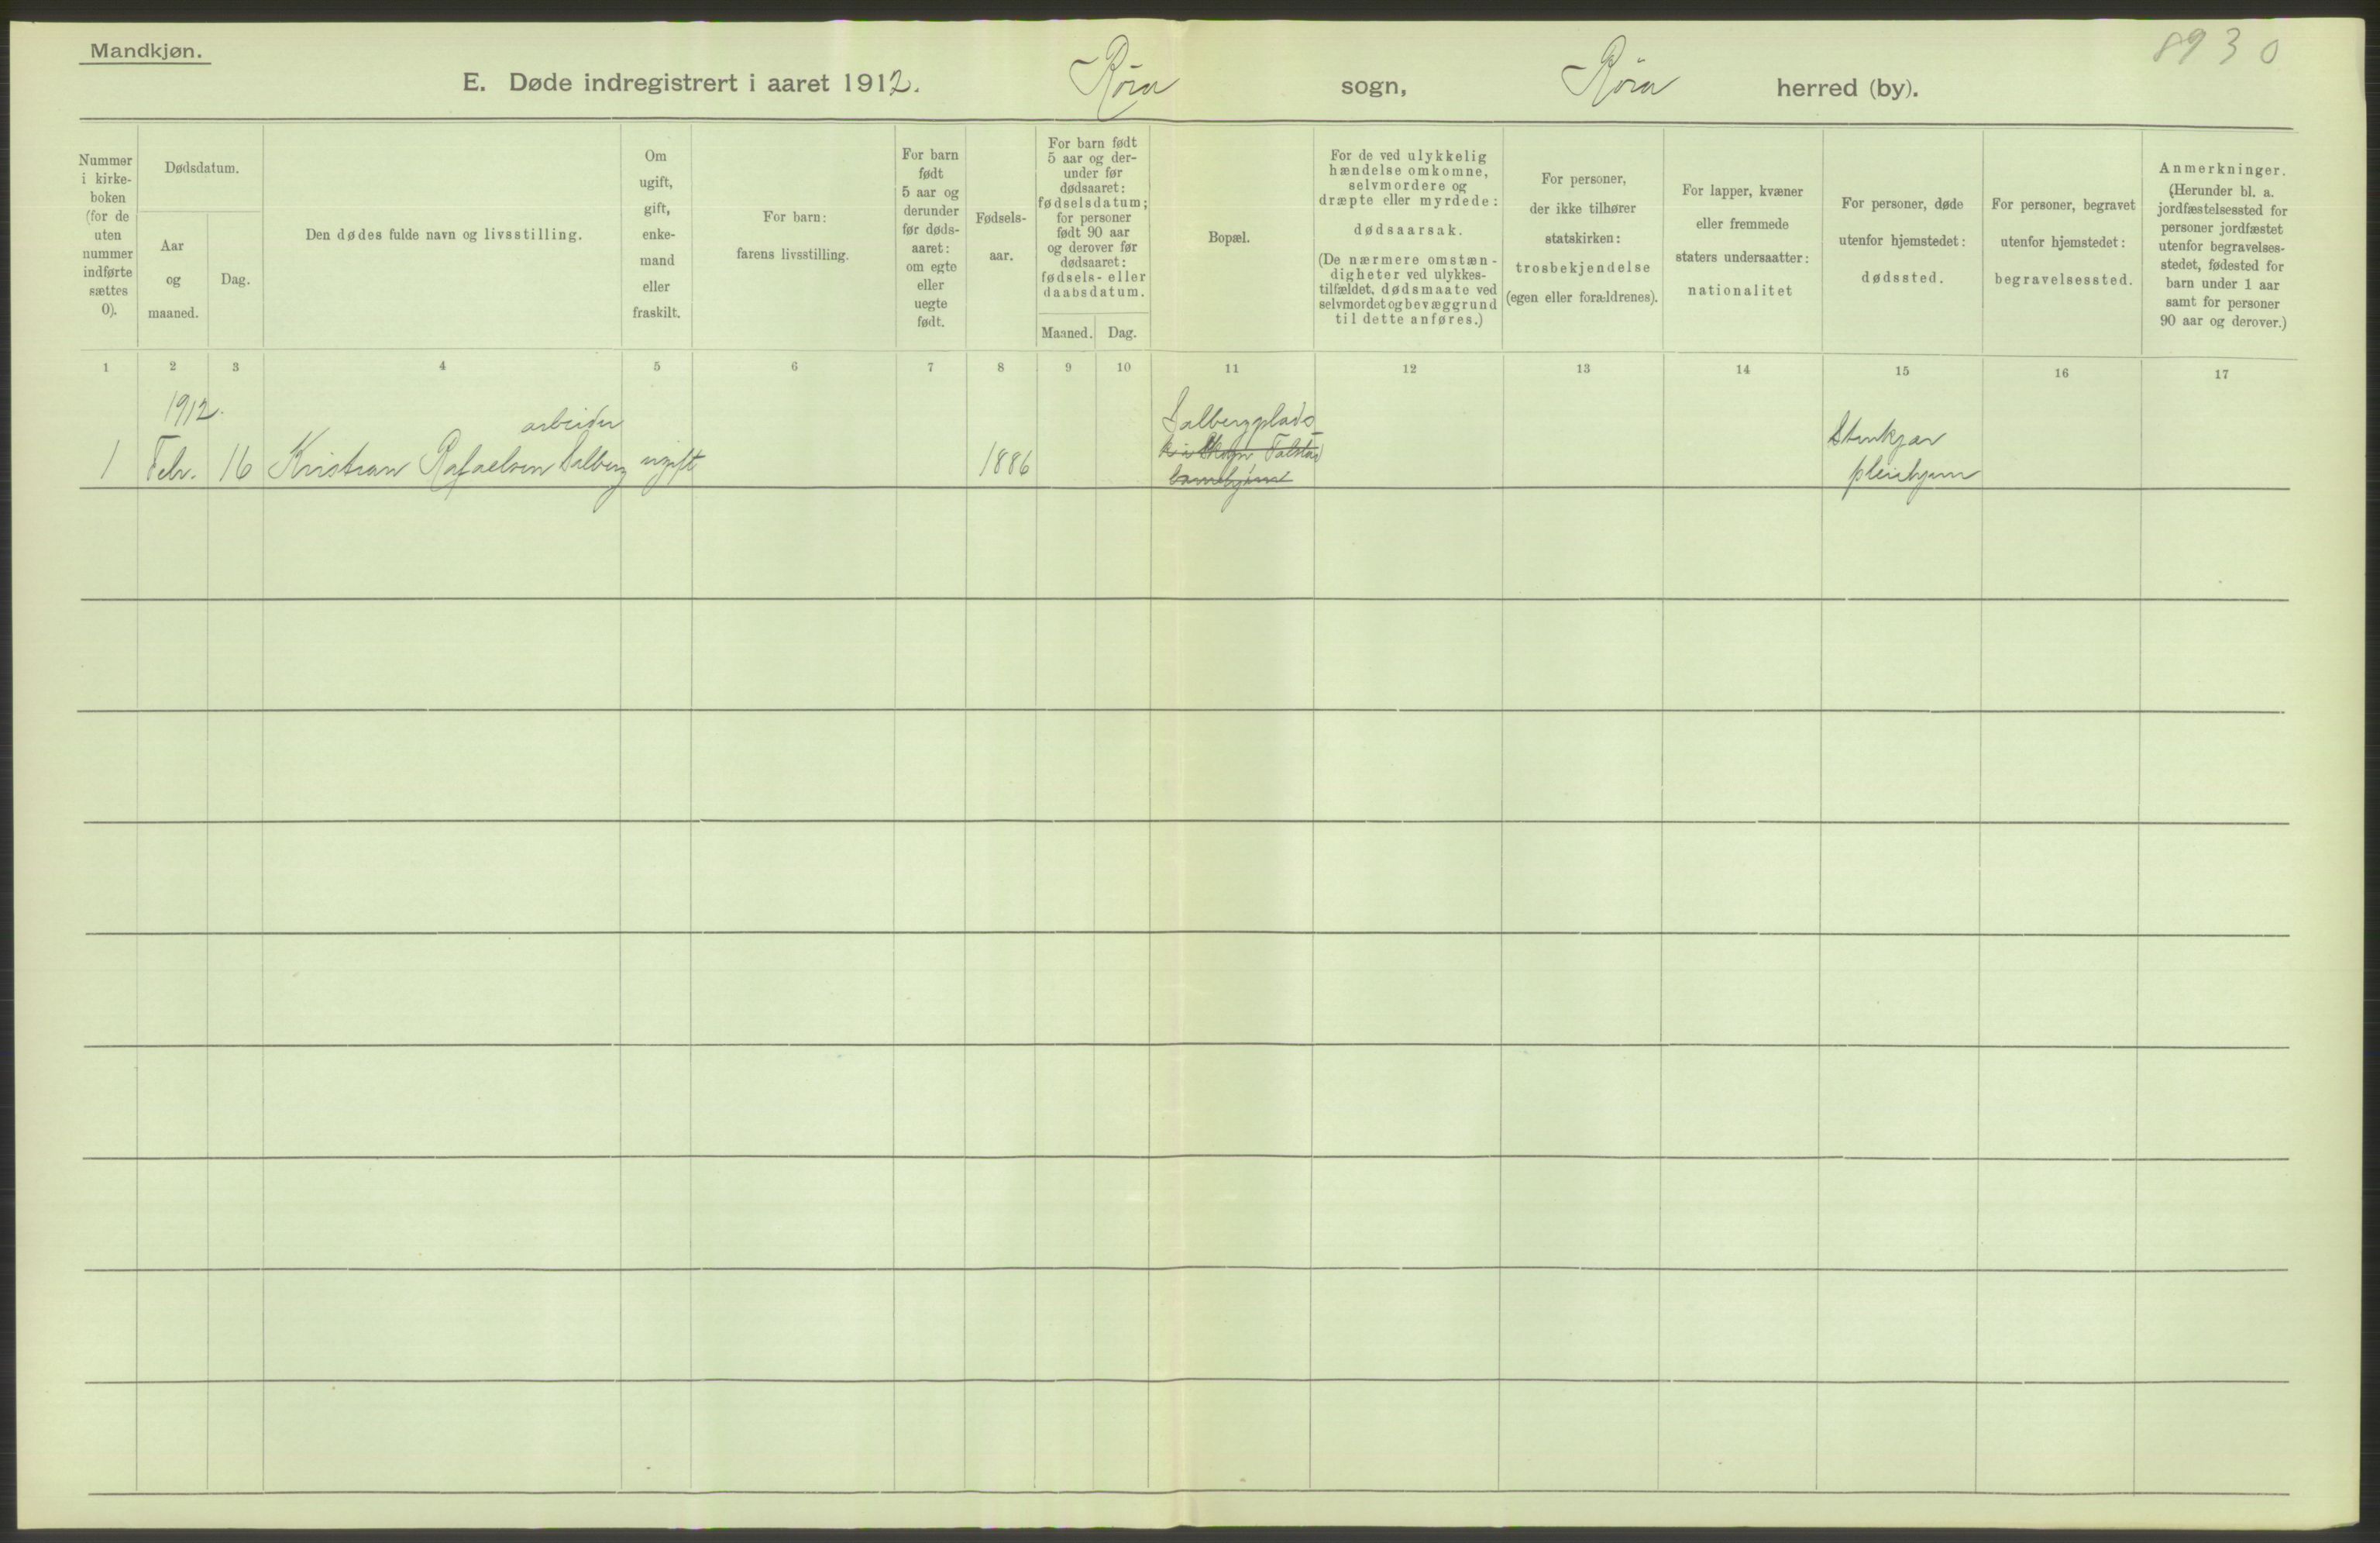 Mandkjøn.
8930
E. Døde indregistrert i aaret 1912. Røra sogn, Røra herred (by).
Nummer
i kirke-
boken
(for de
uten
nummer
indførte
sættes
0).
Dødsdatum.
Aar
og
maaned.
Dag.
Den dødes fulde navn og livsstilling.
Om
ugift,
gift,
enke-
mand
eller
fraskilt.
For barn:
farens livsstilling.
For barn
født
5 aar og
derunder
før døds-
aaret:
om egte
eller
uegte
født.
Fødsels-
aar.
For barn født
5 aar og der-
under før
dødsaaret:
fødselsdatum;
for personer
født 90 aar
og derover før
dødsaaret:
fødsels- eller
daabsdatum.
Maaned.
Dag.
Bopæl.
For de ved ulykkelig
hændelse omkomne,
selvmordere og
dræpte eller myrdede:
dødsaarsak.
(De nærmere omstæn-
digheter ved ulykkes-
tilfældet, dødsmaate ved
selvmordet og bevæggrund
til dette anføres.)
For personer,
der ikke tilhører
statskirken:
trosbekjendelse
(egen eller forældrenes).
For lapper, kvæner
eller fremmede
staters undersaatter:
nationalitet
For personer, døde
utenfor hjemstedet:
dødssted.
For personer, begravet
utenfor hjemstedet:
begravelsessted.
Anmerkninger.
(Herunder bl. a.
jordfæstelsessted for
personer jordfæstet
utenfor begravelses-
stedet, fødested for
barn under 1 aar
samt for personer
90 aar og derover.)
1 2 3 4 5 6 7 8 9 10 11 12 13 14 15 16 17
1912.
1 Febr. 16
arbeider
Kristian Rafaelsen Salberg
ugift
1886
Salbergplads
Stenkjær
pleiehjem